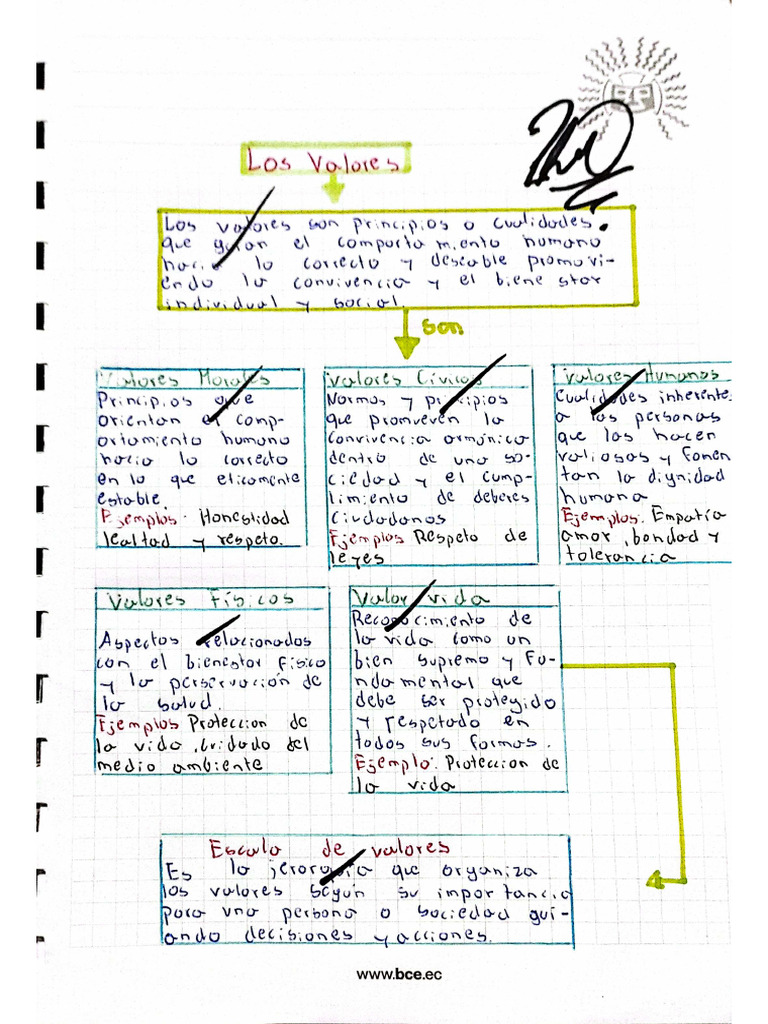 Los Valores
Los valores son principios o cualidades
que guian el comportamiento humano
hacia lo correcto y deseable promovi-
endo la convivencia y el bienestar
individual y social.
son
Valores Morales
Principios que
orientan el comp-
ortamiento humano
hacia lo correcto
en lo que eticamente
estable
Ejemplos. Honestidad
lealtad y respeto.
Valores Cívicos
Normas y principios
que promueven la
convivencia armónica
dentro de una so-
ciedad y el cump-
limiento de deberes
ciudadanos
Ejemplos Respeto de
leyes
Valores Humanos
Cualidades inherente
a las personas
que las hacen
valiosas y fomen
tan la dignidad
humana
Ejemplos. Empatía
amor, bondad y
tolerancia
Valores Físicos
Aspectos relacionados
con el bienestar físico
y la perservación de
la salud.
Ejemplos Protección de
la vida, cuidado del
medio ambiente
Valor vida
Reconocimiento de
la vida como un
bien supremo y fu-
ndamental que
debe ser protegido
y respetado en
todos sus formas.
Ejemplo. Protección de
la vida
Escala de valores
Es la jerarquía que organiza
los valores según su importancia
para una persona o sociedad gui-
ando decisiones y acciones.
www.bce.ec